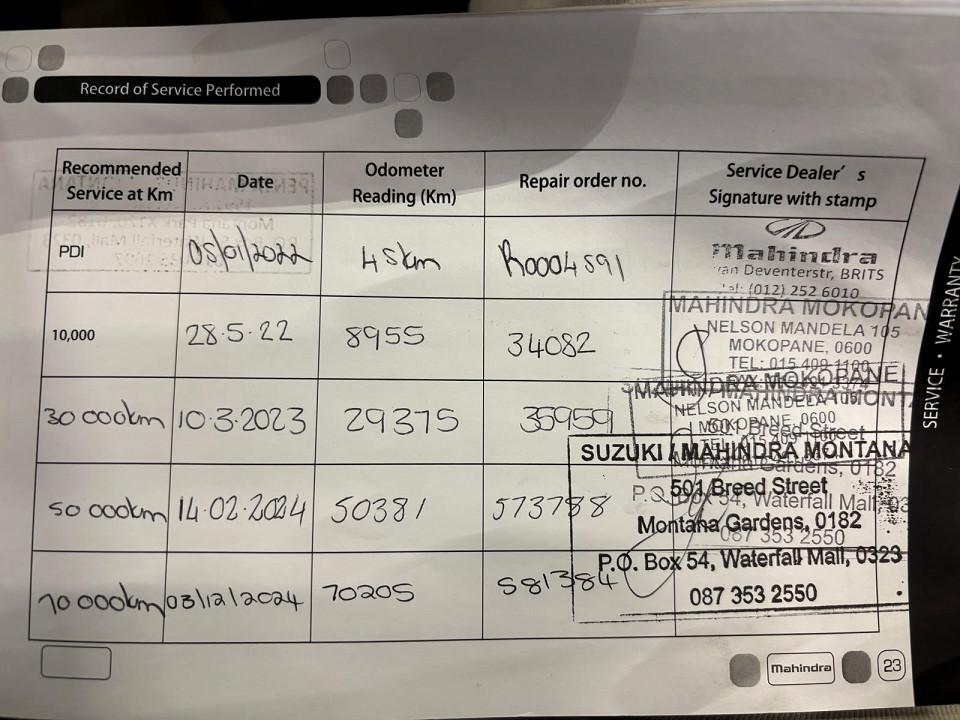 Record of Service Performed
Recommended Service at Km
Date
Odometer Reading (Km)
Repair order no.
Service Dealer' s Signature with stamp
PDI
05/01/2022
45km
R0004591
Mahindra
van Deventerstr, BRITS
Tel: (012) 252 6010
10,000
28.5.22
8955
34082
MAHINDRA MOKOPAN
NELSON MANDELA 105
MOKOPANE, 0600
TEL: 015 409 1100
30 000km
10.3.2023
29375
35959
MAHINDRA MOKOPANE
NELSON MANDELA 105
MOKOPANE, 0600
TEL: 015 409
50 000km
14.02.2024
50381
573788
501 Breed Street
Montana Gardens, 0182
P.O. Box 54, Waterfall Mall, 03
087 353 2550
70 000km
03/12/2024
70205
581384
SUZUKI / MAHINDRA MONTANA
501 Breed Street
Montana Gardens, 0182
P.O. Box 54, Waterfall Mall, 0323
087 353 2550
SERVICE • WARRANTY
Mahindra
23